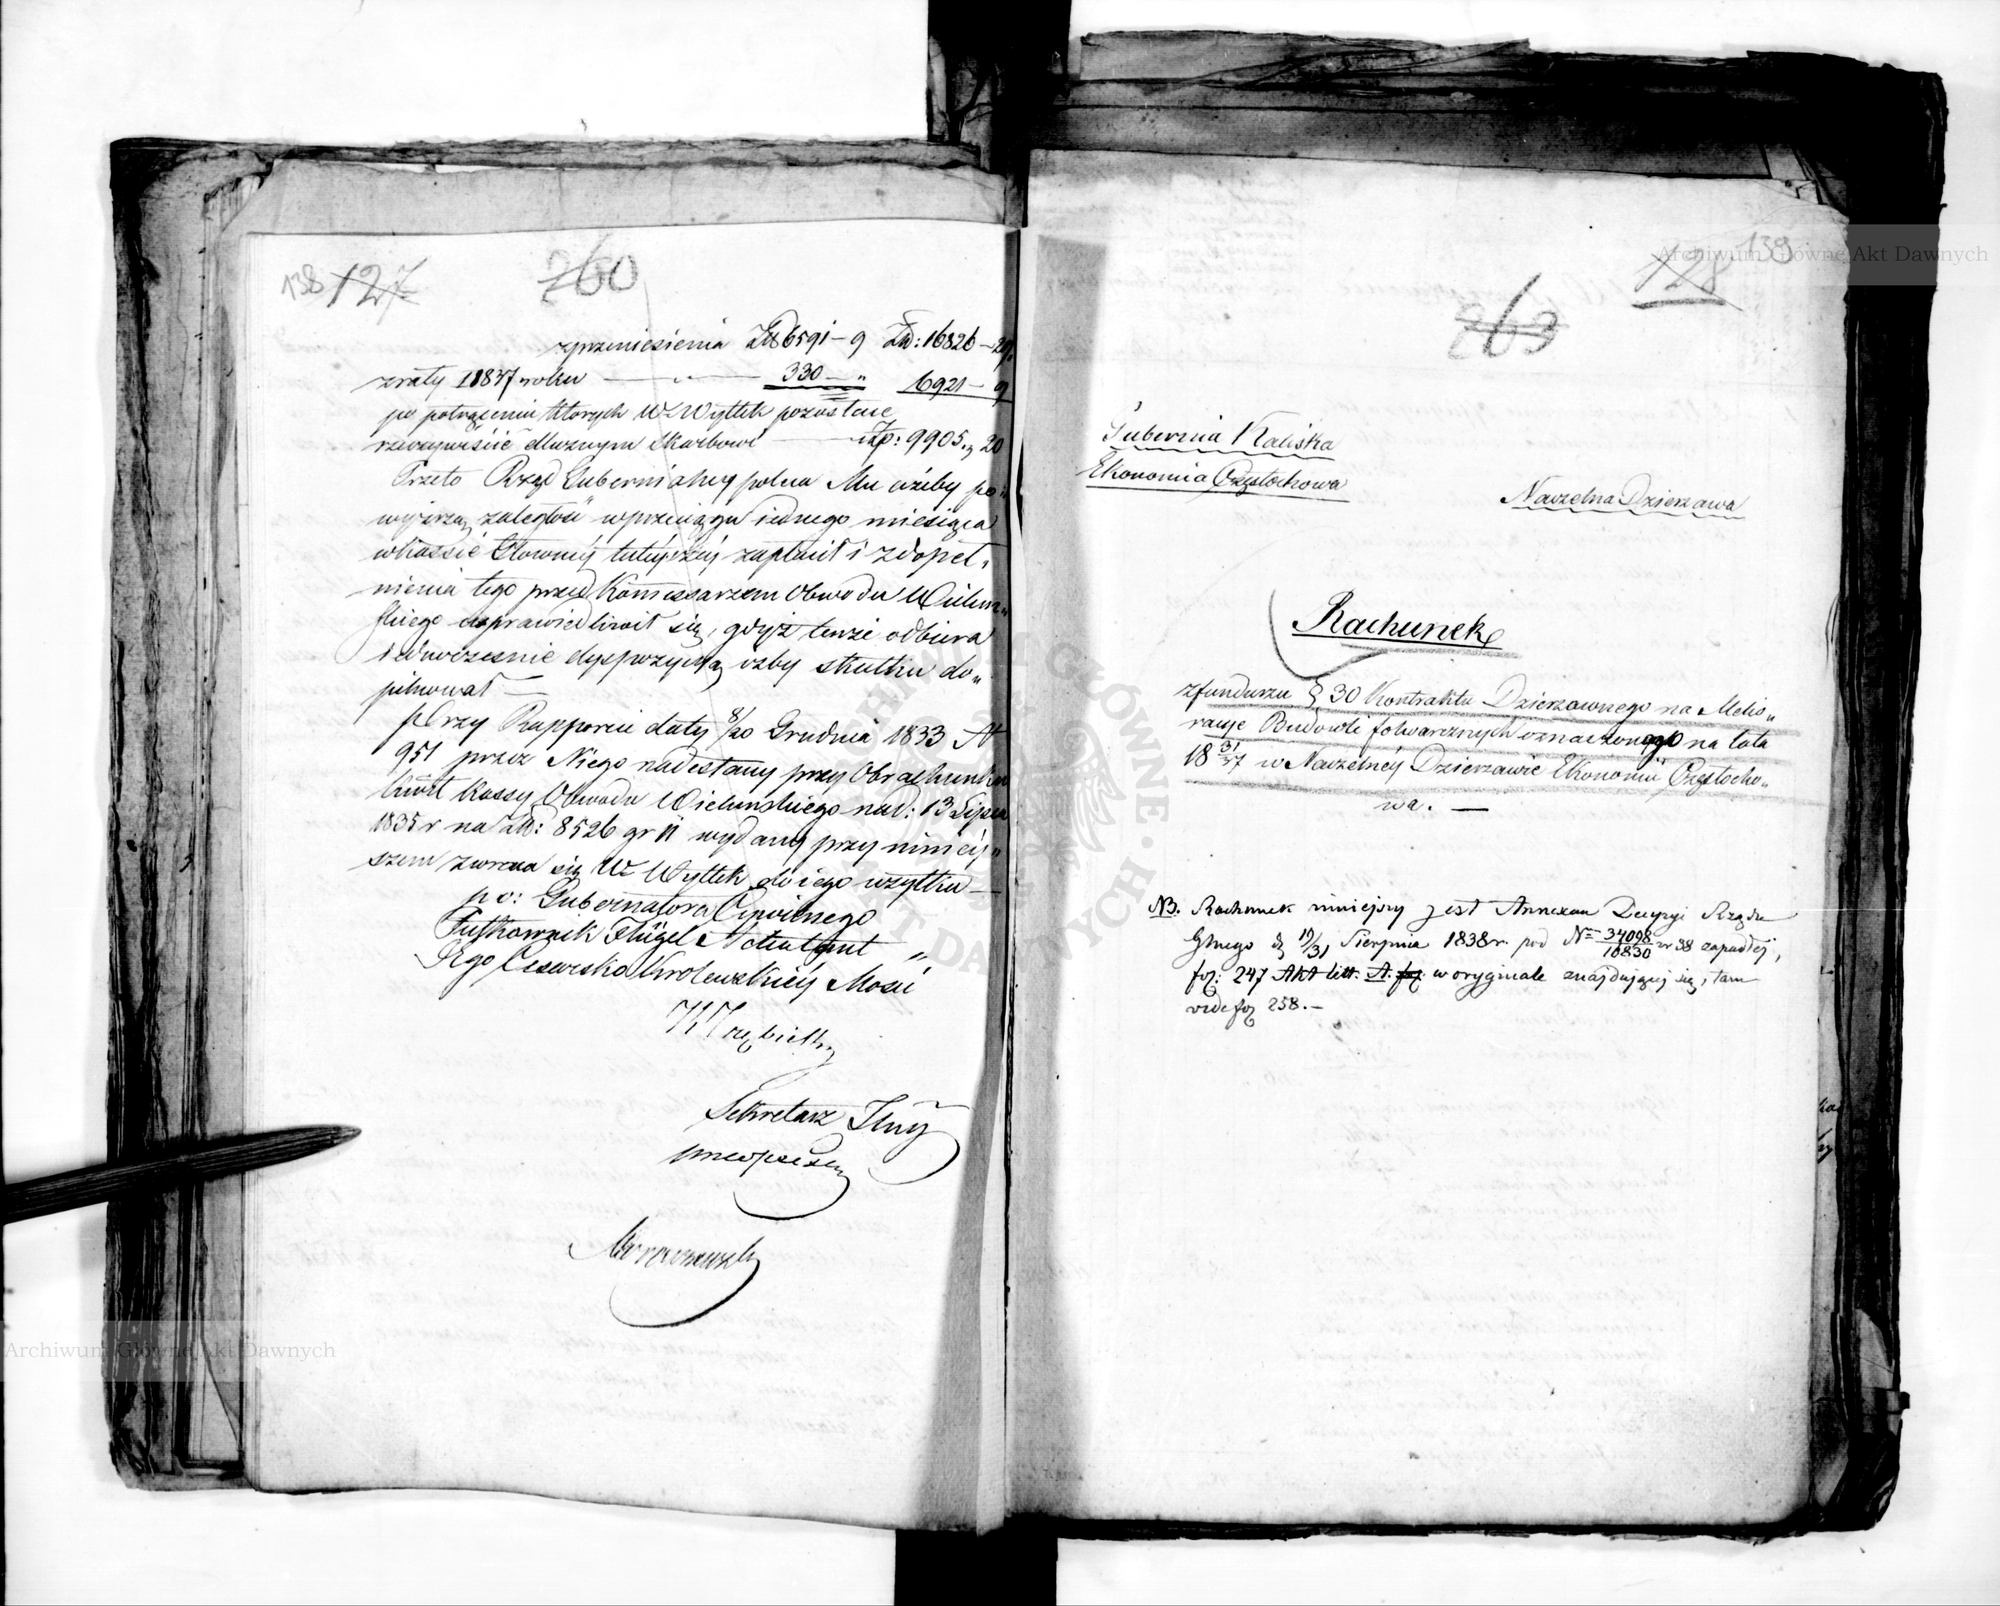 138 127 260
zprzeniesienia Złł 6591 — 9 Złł: 16826 — 29
zraty 1 1837 roku — „ — 330 — „ 6921 — 9
po potrąceniu których W. Wyttek pozostaie
rzeczywiście dłużnym Skarbowi — złp: 9905 „ 20
Przeto Rząd Gubernialny poleca Mu ażeby po„
wyższą zaległość wprzeciągu iednego miesiąca
wkassie Głowney tuteyszey zapłacił i zdopeł„
nienia tego przed Kommissarzem Obwodu Wieluń„
skiego usprawiedliwił się, gdyż tenże odbiera
i edwocześnie dyspozycyą ażby skutku do„
pilnował —
Przy Rapporcie daty 8/20 Grudnia 1833 N
951 przez Niego nadesłany przy Obrachunku
kwit Kassy Obwodu Wieluńskiego nad: 13 Lipca
1835 r na złł: 8526 gr 11 wydany przy niniey„
szem zwraca się W. Wyttek do iego użytku —
po: Gubernatora Cywilnego
Pułkownik Flügel Adiutant „
Iego Cesarsko Krolewskiéy Mości
Sekretarz Jlny
139 128
263
Gubernia Kaliska
Ekonomia Częstochowa
Naczelna Dzierzawa
Rachunek
zfunduszu § 30 Kontraktu Dzierzawnego na Melio„
racye Budowli folwarcznych oznaczonego na lata
18 31/37 w Naczelnéy Dzierzawie Ekonomii Częstocho„
wa. —
NB. Rachunek niniejszy jest Annexem Decyzyi Rządu
Glnego d 19/31 Sierpnia 1838 r. pod N 34098/10830 w 38 zapadłej,
fol: 247 Akt litt. A. fol w oryginale znajdującej się, tam
vide fol 258. —
Archiwum Główne Akt Dawnych
Archiwum Główne Akt Dawnych